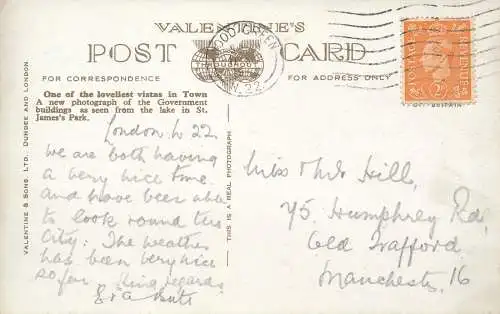 VALENTINE'S
POST CARD
FOR CORRESPONDENCE
FOR ADDRESS ONLY
One of the loveliest vistas in Town
A new photograph of the Government
buildings as seen from the lake in St.
James's Park.
VALENTINE & SONS LTD. DUNDEE AND LONDON.
THIS IS A REAL PHOTOGRAPH
WOOD GREEN
N. 22
POSTAGE
REVENUE
London N 22.
We are both having
a very nice time.
and have been able
to look round this
City. The weather
has been very nice
so far. Kind regards
Miss & Mr Hill,
75, Humphrey Rd,
Old Trafford.
Manchester, 16